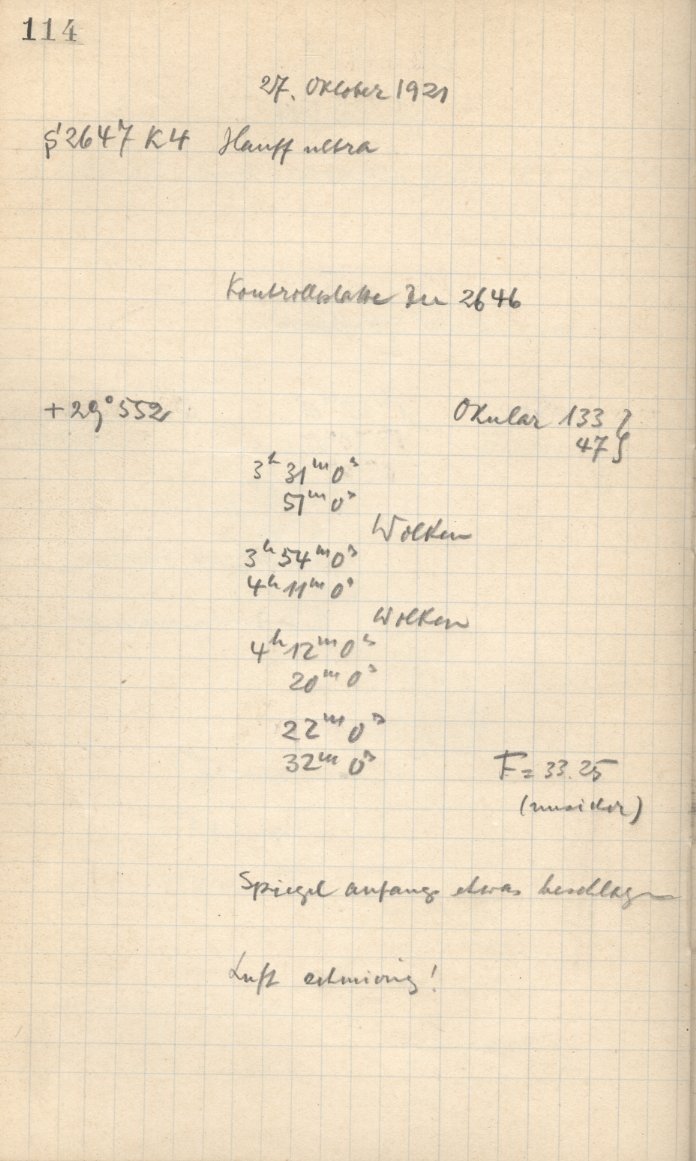 114
27. Oktober 1921
S 2647 K4 Hauff ultra
Kontrollplatte zu 2646
+29° 552
Okular 133 }
47 }
3ʰ 31ᵐ 0ˢ
51ᵐ 0ˢ
Wolken
3ʰ 54ᵐ 0ˢ
4ʰ 11ᵐ 0ˢ
Wolken
4ʰ 12ᵐ 0ˢ
20ᵐ 0ˢ
22ᵐ 0ˢ
32ᵐ 0ˢ
F = 33.25
(unsicher)
Spiegel anfangs etwas beschlagen
Luft schmierig!